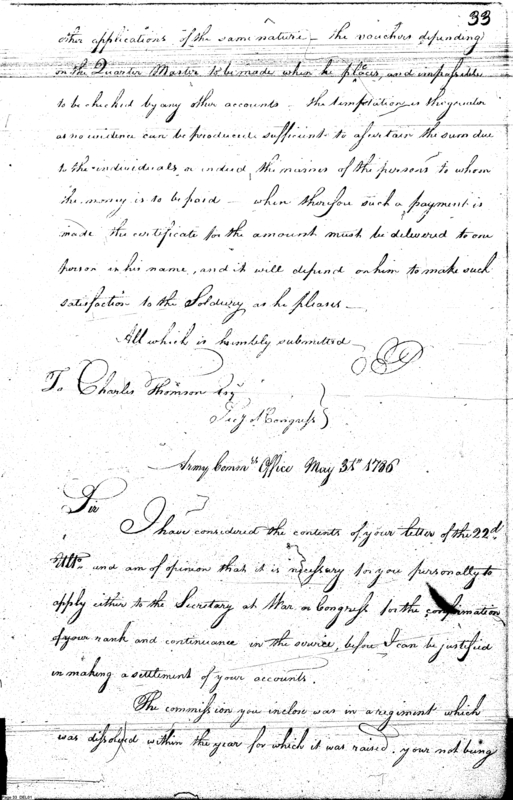 33
other applications of the same nature – the vouchers depending
on the Quarter Master to be made when he places, and impossible
to be checked by any other accounts – the temptation is the greater
as no evidence can be produced sufficient to ascertain the sum due
to the individuals or indeed, the names of the persons to whom
the money is to be paid – when therefore such a payment is
made the certificate for the amount must be delivered to one
person in his name, and it will depend on him to make such
satisfaction to the Soldiery as he pleases –
All which is humbly submitted
To Charles Thomson Esqr
Secy of Congress
Army Commrs Office May 31st 1786
Sir
I have considered the contents of your letter of the 22d
Ulto. and am of opinion that it is necessary for you personally to
apply either to the Secretary at War or Congress for the confirmation
of your rank and continuance in the service, before I can be justified
in making a settlement of your accounts.
The commission you inclose was in a regiment which
was dissolved within the year for which it was raised. your not being